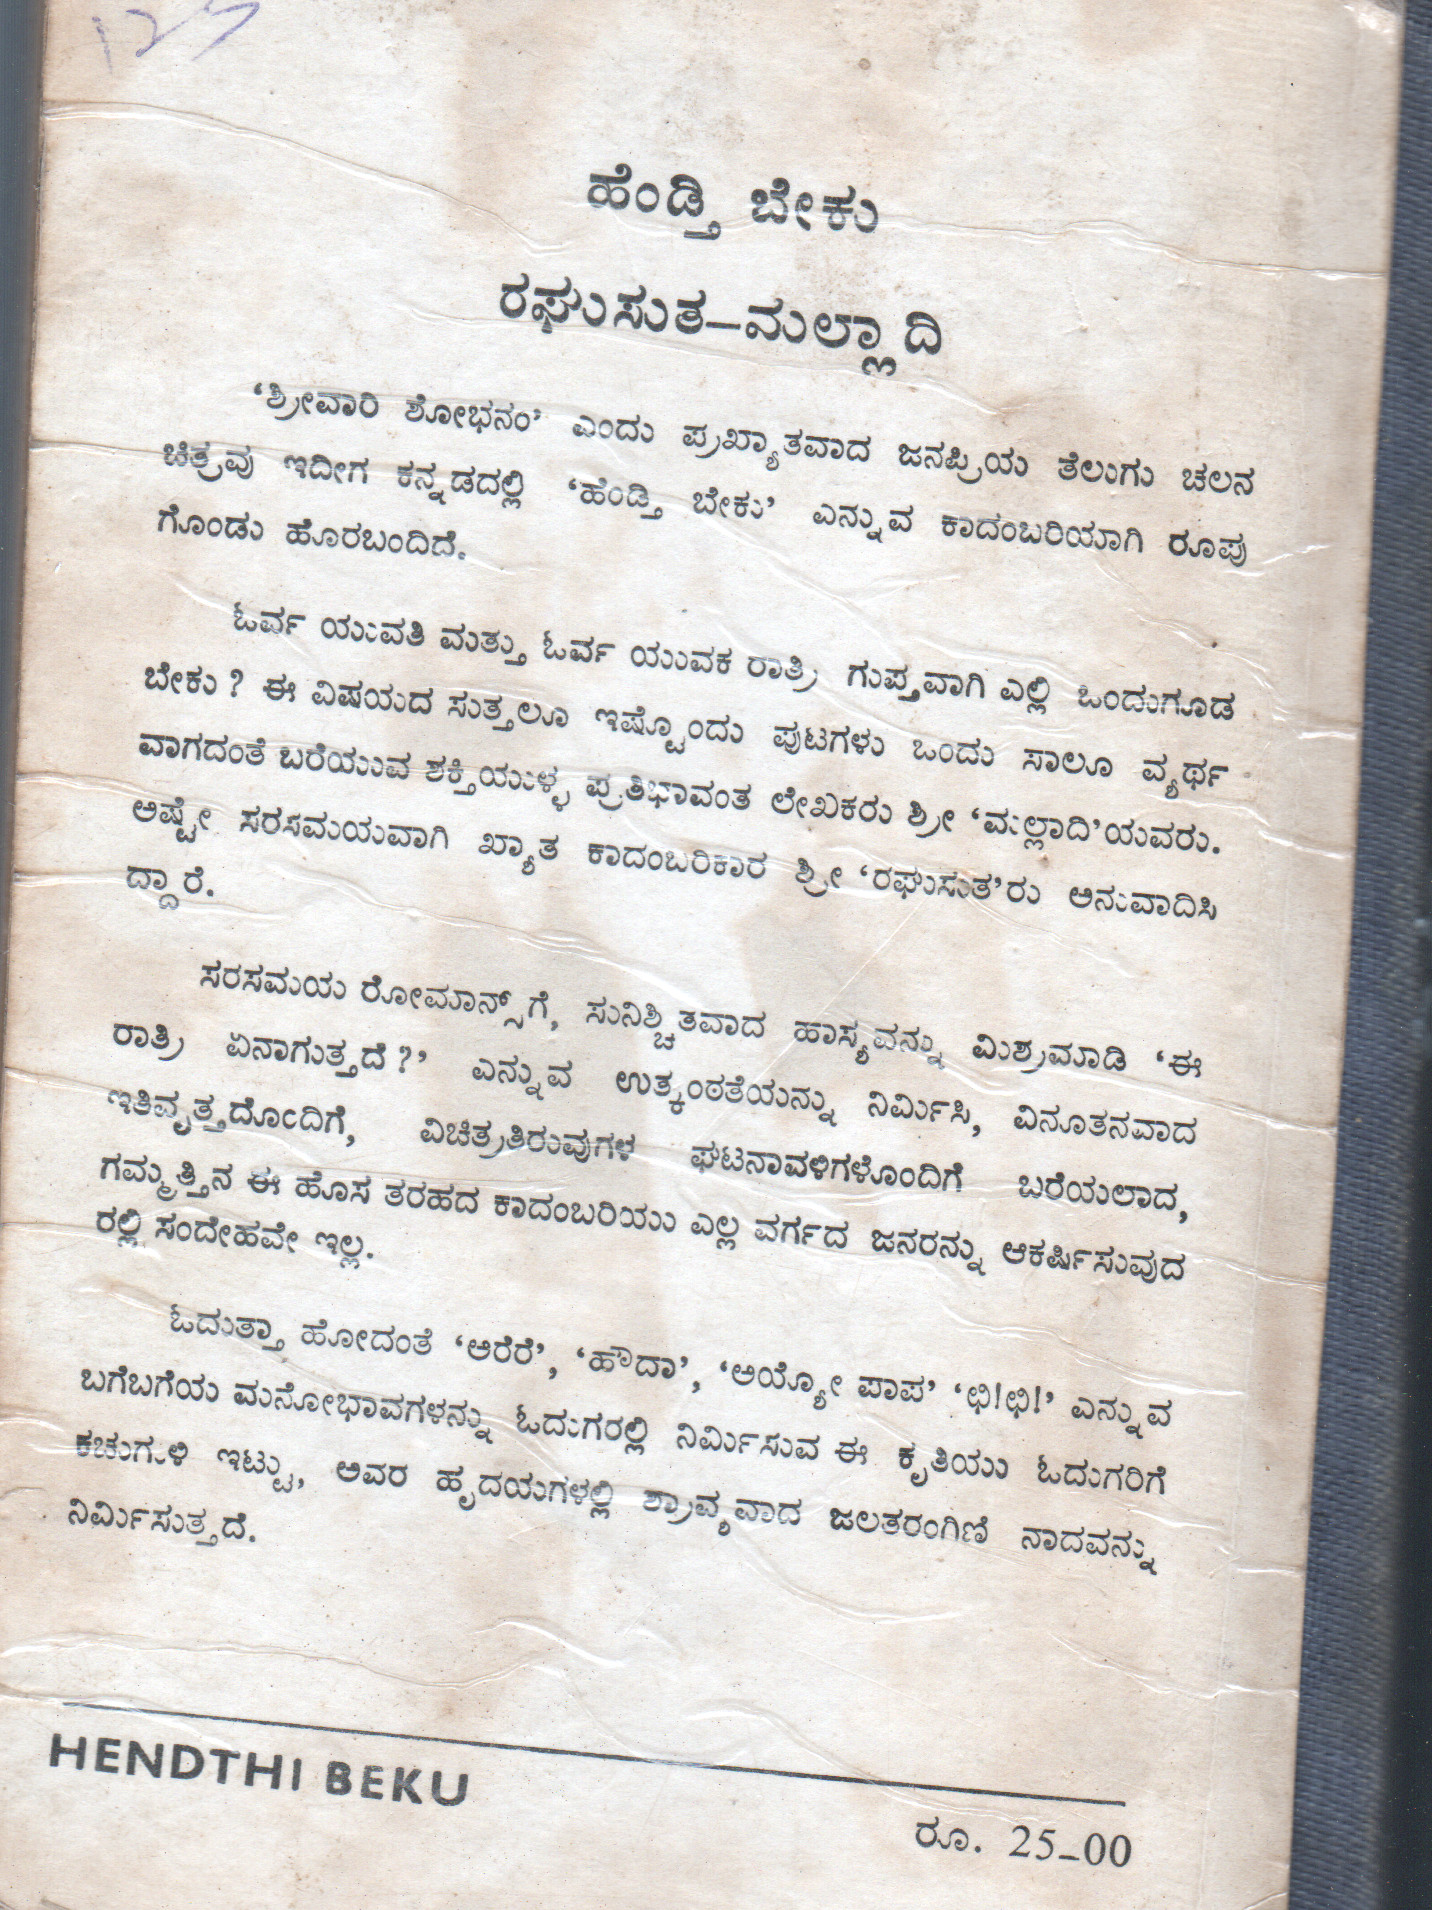 125
ಹೆಂಡ್ತಿ ಬೇಕು
ರಘುಸುತ–ಮಲ್ಲಾದಿ
‘ಶ್ರೀವಾರಿ ಶೋಭನಂ’ ಎಂದು ಪ್ರಖ್ಯಾತವಾದ ಜನಪ್ರಿಯ ತೆಲುಗು ಚಲನ
ಚಿತ್ರವು ಇದೀಗ ಕನ್ನಡದಲ್ಲಿ ‘ಹೆಂಡ್ತಿ ಬೇಕು’ ಎನ್ನುವ ಕಾದಂಬರಿಯಾಗಿ ರೂಪು
ಗೊಂಡು ಹೊರಬಂದಿದೆ.
ಓರ್ವ ಯುವತಿ ಮತ್ತು ಓರ್ವ ಯುವಕ ರಾತ್ರಿ ಗುಪ್ತವಾಗಿ ಎಲ್ಲಿ ಒಂದುಗೂಡ
ಬೇಕು ? ಈ ವಿಷಯದ ಸುತ್ತಲೂ ಇಷ್ಟೊಂದು ಪುಟಗಳು ಒಂದು ಸಾಲೂ ವ್ಯರ್ಥ
ವಾಗದಂತೆ ಬರೆಯುವ ಶಕ್ತಿಯುಳ್ಳ ಪ್ರತಿಭಾವಂತ ಲೇಖಕರು ಶ್ರೀ ‘ಮಲ್ಲಾದಿ’ಯವರು.
ಅಷ್ಟೇ ಸರಸಮಯವಾಗಿ ಖ್ಯಾತ ಕಾದಂಬರಿಕಾರ ಶ್ರೀ ‘ರಘುಸುತ’ರು ಅನುವಾದಿಸಿ
ದ್ದಾರೆ.
ಸರಸಮಯ ರೋಮಾನ್ಸ್‌ಗೆ, ಸುನಿಶ್ಚಿತವಾದ ಹಾಸ್ಯವನ್ನು ಮಿಶ್ರಮಾಡಿ ‘ಈ
ರಾತ್ರಿ ಏನಾಗುತ್ತದೆ ?’ ಎನ್ನುವ ಉತ್ಕಂಠತೆಯನ್ನು ನಿರ್ಮಿಸಿ, ವಿನೂತನವಾದ
ಇತಿವೃತ್ತದೊಂದಿಗೆ, ವಿಚಿತ್ರತಿರುವುಗಳ ಘಟನಾವಳಿಗಳೊಂದಿಗೆ ಬರೆಯಲಾದ,
ಗಮ್ಮತ್ತಿನ ಈ ಹೊಸ ತರಹದ ಕಾದಂಬರಿಯು ಎಲ್ಲ ವರ್ಗದ ಜನರನ್ನು ಆಕರ್ಷಿಸುವುದ
ರಲ್ಲಿ ಸಂದೇಹವೇ ಇಲ್ಲ.
ಓದುತ್ತಾ ಹೋದಂತೆ ‘ಅರೆರೆ’, ‘ಹೌದಾ’, ‘ಅಯ್ಯೋ ಪಾಪ’ ‘ಛಿ!ಛಿ!’ ಎನ್ನುವ
ಬಗೆಬಗೆಯ ಮನೋಭಾವಗಳನ್ನು ಓದುಗರಲ್ಲಿ ನಿರ್ಮಿಸುವ ಈ ಕೃತಿಯು ಓದುಗರಿಗೆ
ಕಚುಗುಳಿ ಇಟ್ಟು, ಅವರ ಹೃದಯಗಳಲ್ಲಿ ಶ್ರಾವ್ಯವಾದ ಜಲತರಂಗಿಣಿ ನಾದವನ್ನು
ನಿರ್ಮಿಸುತ್ತದೆ.
HENDTHI BEKU
ರೂ. 25-00